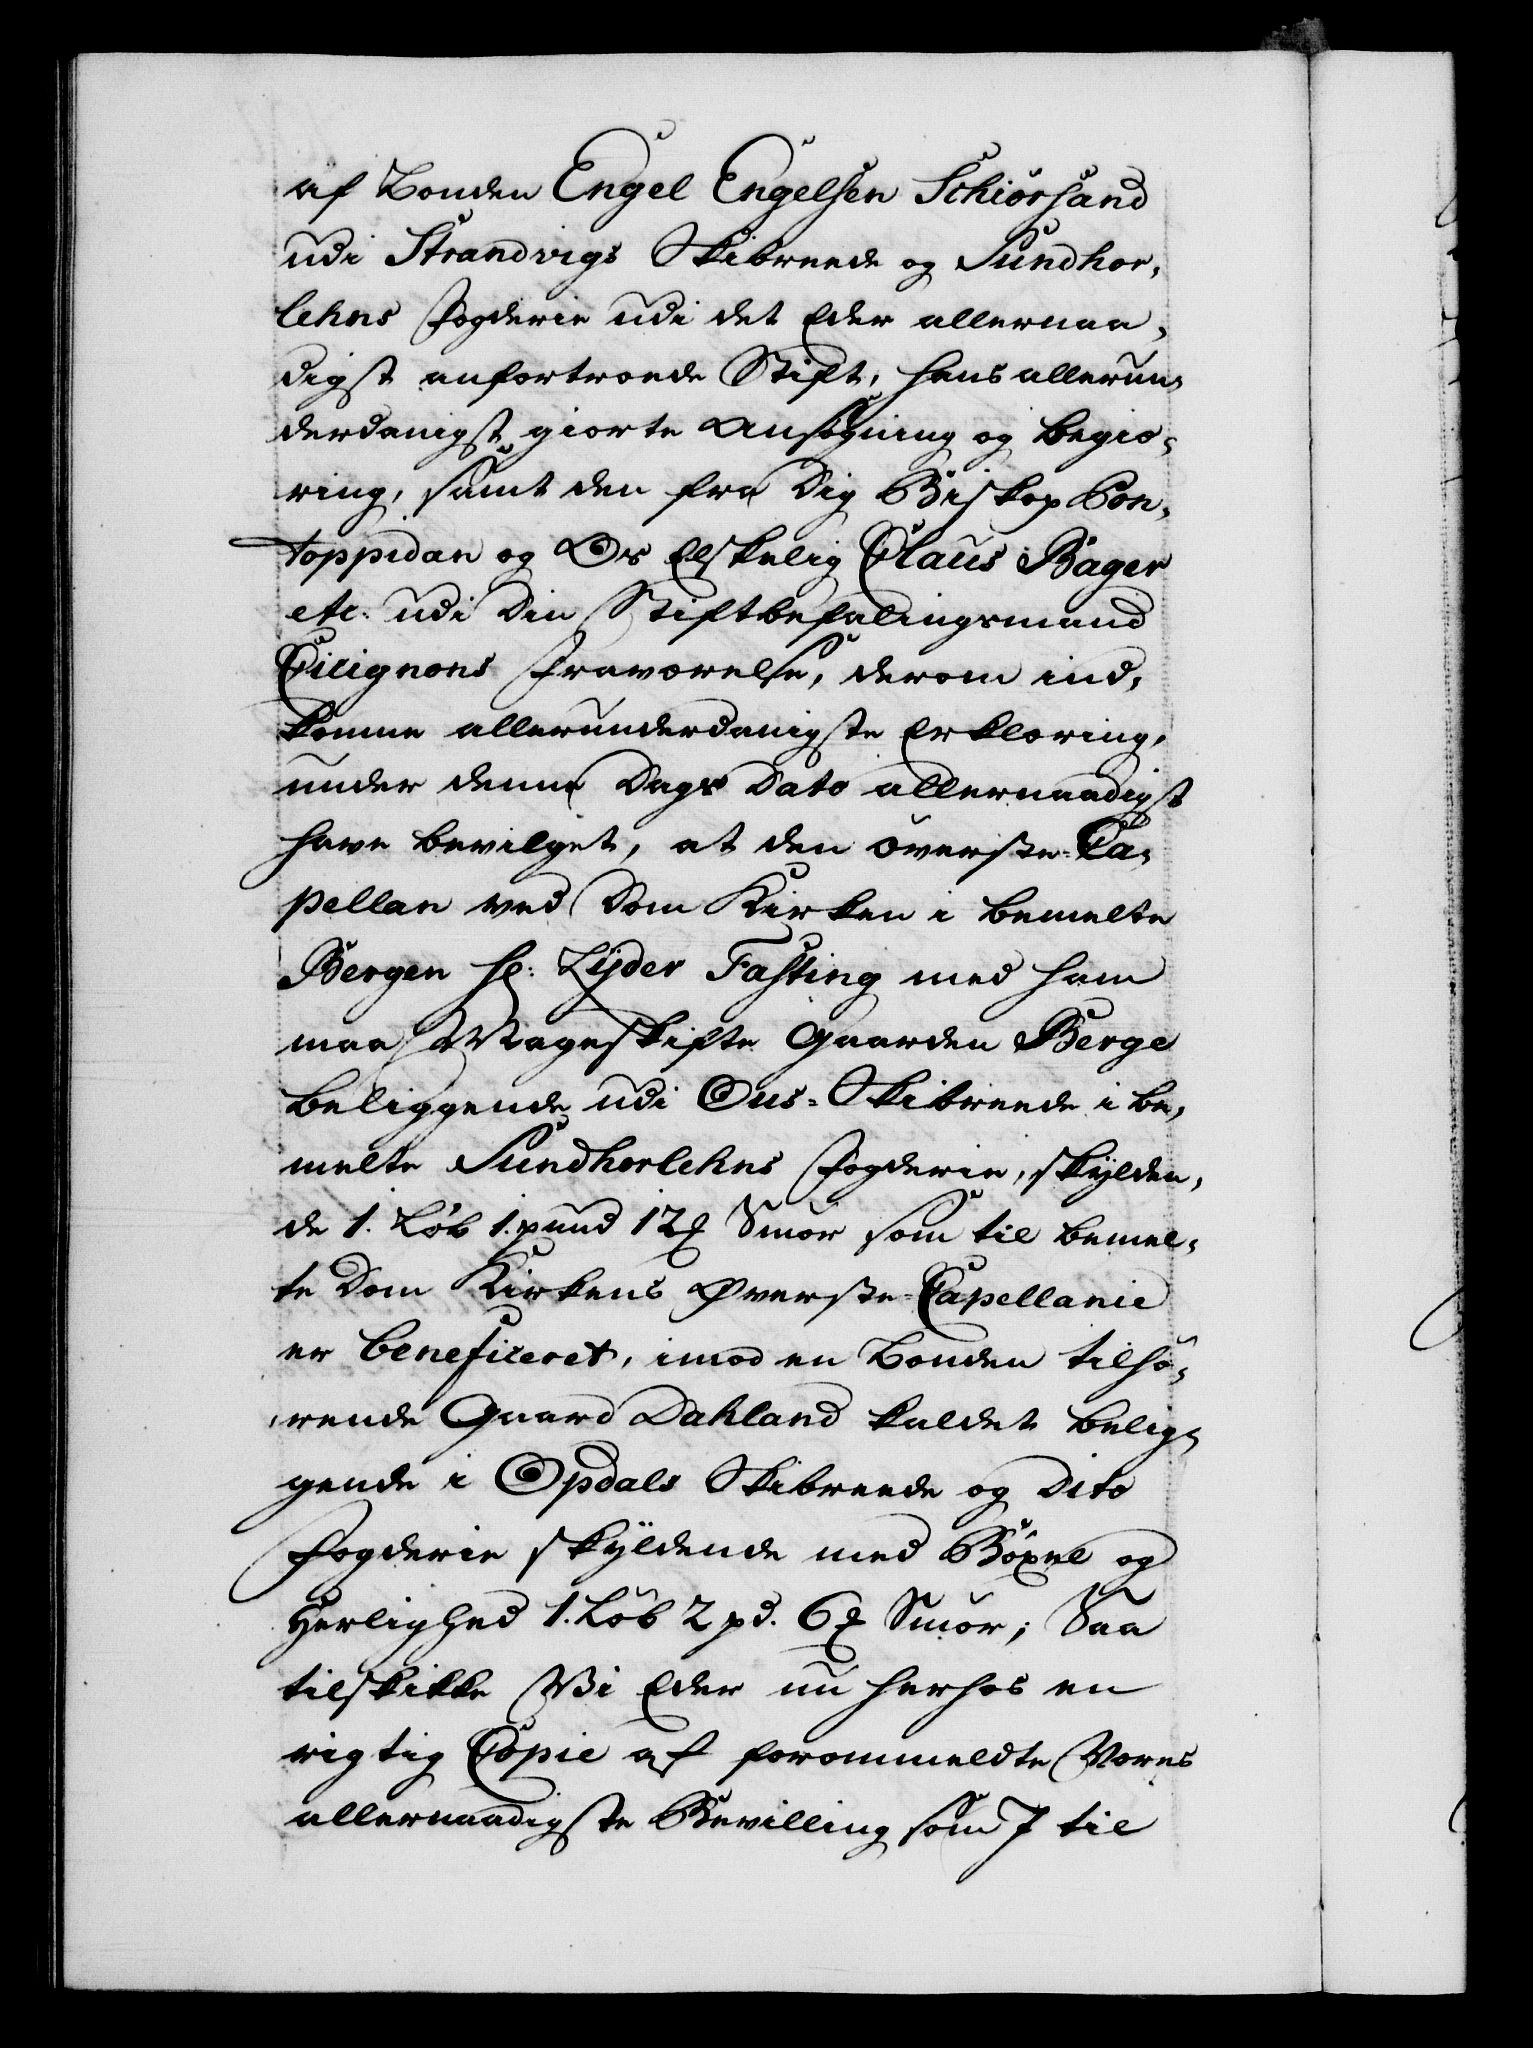 af Bonden Engel Engelsen Schiørsand
udi Strandvigs Skibreede og Sundhor-
lehns Fogderie udi det Eder allernaa-
digst anfortroede Stift, hans allerun-
derdanigst giorte Ansøgning og begiæ-
ring, samt den fra Dig Biskop Pon-
toppidan og Os Elskelig Claus Bager
etc: udi Din Stiftbefalingsmand
Cicignons Fraværelse, derom ind-
komne allerunderdanigste Erklæring,
under denne Dags Dato allernaadigst
have bevilget, at den øverste-Ca-
pellan ved Dom Kirken i bemelte
Bergen Hr: Lyder Fasting med ham
maa Mageskifte Gaarden Berge
beliggende udi Ous-Skibreede i be-
melte Sundhorlehns Fogderie, skylden-
de 1. Løb 1. pund 12 Smør som til bemel-
te Dom Kirkens Øverste-Capellanie
er beneficeret, imod en Bonden tilhø-
rende Gaard Dahland kaldet belig-
gende i Opdals Skibreede og dito
Fogderie skyldende med Böxel og
Herlighed 1. Løb 2 pd. 6 Smør; Saa
tilskikke Vi Eder nu herhos en
rigtig Copie af forommeldte Vores
allernaadigste Bevilling som I til